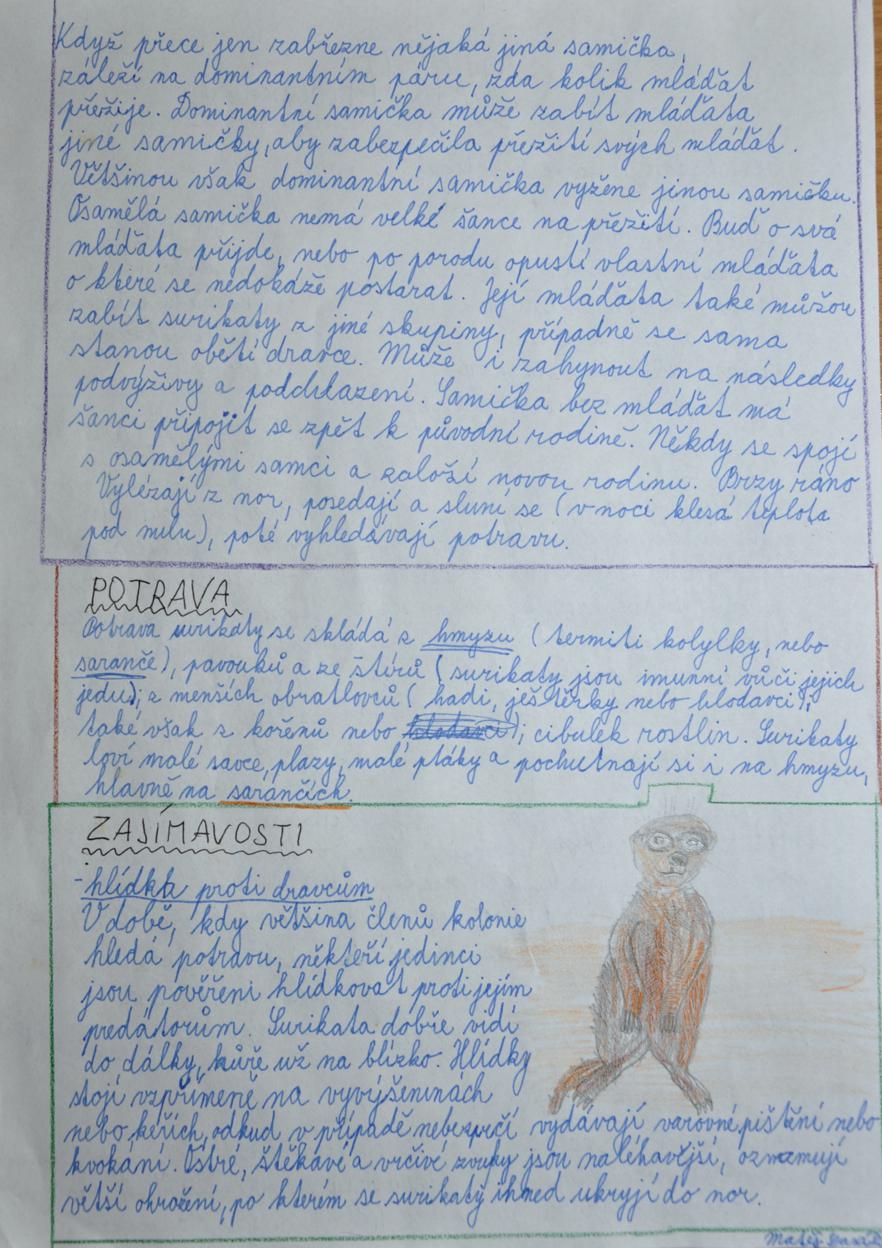 Když přece jen zabřezne nějaká jiná samička,
záleží na dominantním páru, zda kolik mláďat
přežije. Dominantní samička může zabít mláďata
jiné samičky, aby zabezpečila přežití svých mláďat.
Většinou však dominantní samička vyžene jinou samičku.
Osamělá samička nemá velké šance na přežití. Buď o svá
mláďata přijde, nebo po porodu opustí vlastní mláďata
o které se nedokáže postarat. Její mláďata také můžou
zabít surikaty z jiné skupiny, případně se sama
stanou obětí dravce. Může i zahynout na následky
podvýživy a podchlazení. Samička bez mláďat má
šanci připojit se zpět k původní rodině. Někdy se spojí
s osamělými samci a založí novou rodinu. Brzy ráno
Vylézají z nor, posedají a sluní se (v noci klesá teplota
pod nulu), poté vyhledávají potravu.
POTRAVA
Potrava surikaty se skládá z hmyzu (termiti kolylky, nebo
saranče), pavouků a ze štírů (surikaty jsou imunní vůči jejich
jedu); z menších obratlovců (hadi, ještěrky nebo hlodavci);
také však z kořenů nebo hlodavci); cibulek rostlin. Surikaty
loví malé savce, plazy, malé ptáky a pochutnají si i na hmyzu,
hlavně na sarančích.
ZAJÍMAVOSTI
- hlídka proti dravcům
V době, kdy většina členů kolonie
hledá potravu, někteří jedinci
jsou pověřeni hlídkovat proti jejím
predátorům. Surikata dobře vidí
do dálky, hůře už na blízko. Hlídky
stojí vzpřímeně na vyvýšeninách
nebo keřích, odkud v případě nebezpečí vydávají varovné pištění nebo
kvokání. Ostré, štěkavé a vrčivé zvuky jsou naléhavější, oznamují
větší ohrožení, po kterém se surikaty ihned ukryjí do nor.
Matěj